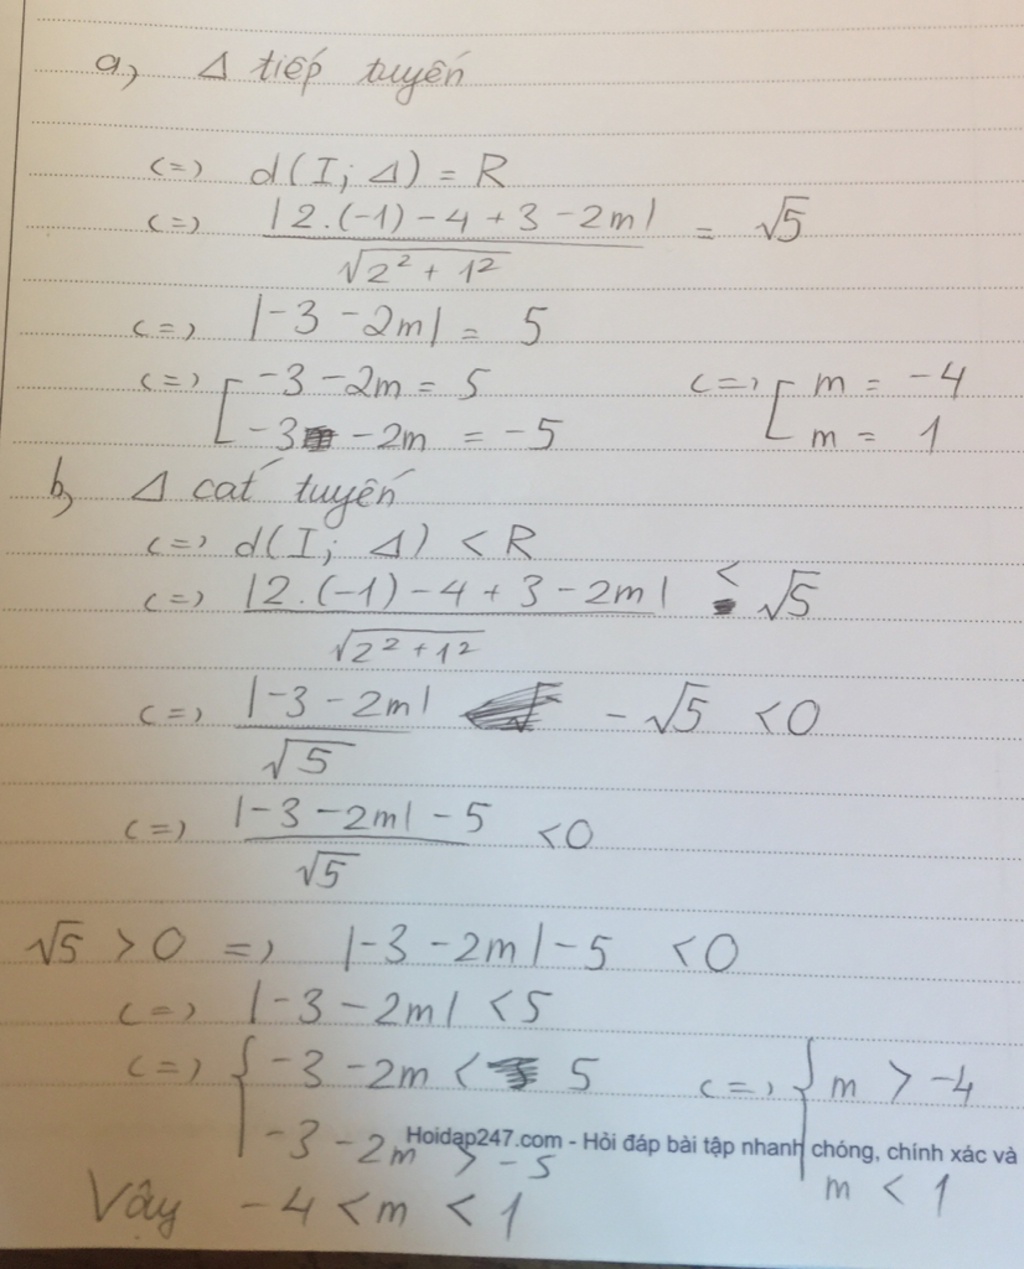 a) Δ tiếp tuyến
<=> d(I; Δ) = R
<=> |2.(-1) - 4 + 3 - 2m| / √2² + 1² = √5
<=> |-3 - 2m| = 5
<=> [ -3 - 2m = 5 <=> [ m = -4
-3 - 2m = -5 m = 1
b) Δ cát tuyến
<=> d(I; Δ) < R
<=> |2.(-1) - 4 + 3 - 2m| / √2² + 1² < √5
<=> |-3 - 2m| / √5 - √5 < 0
<=> |-3 - 2m| - 5 / √5 < 0
√5 > 0 => |-3 - 2m| - 5 < 0
<=> |-3 - 2m| < 5
<=> { -3 - 2m < 5 <=> { m > -4
-3 - 2m > -5 m < 1
Hoidap247.com - Hỏi đáp bài tập nhanh chóng, chính xác và
Vậy -4 < m < 1